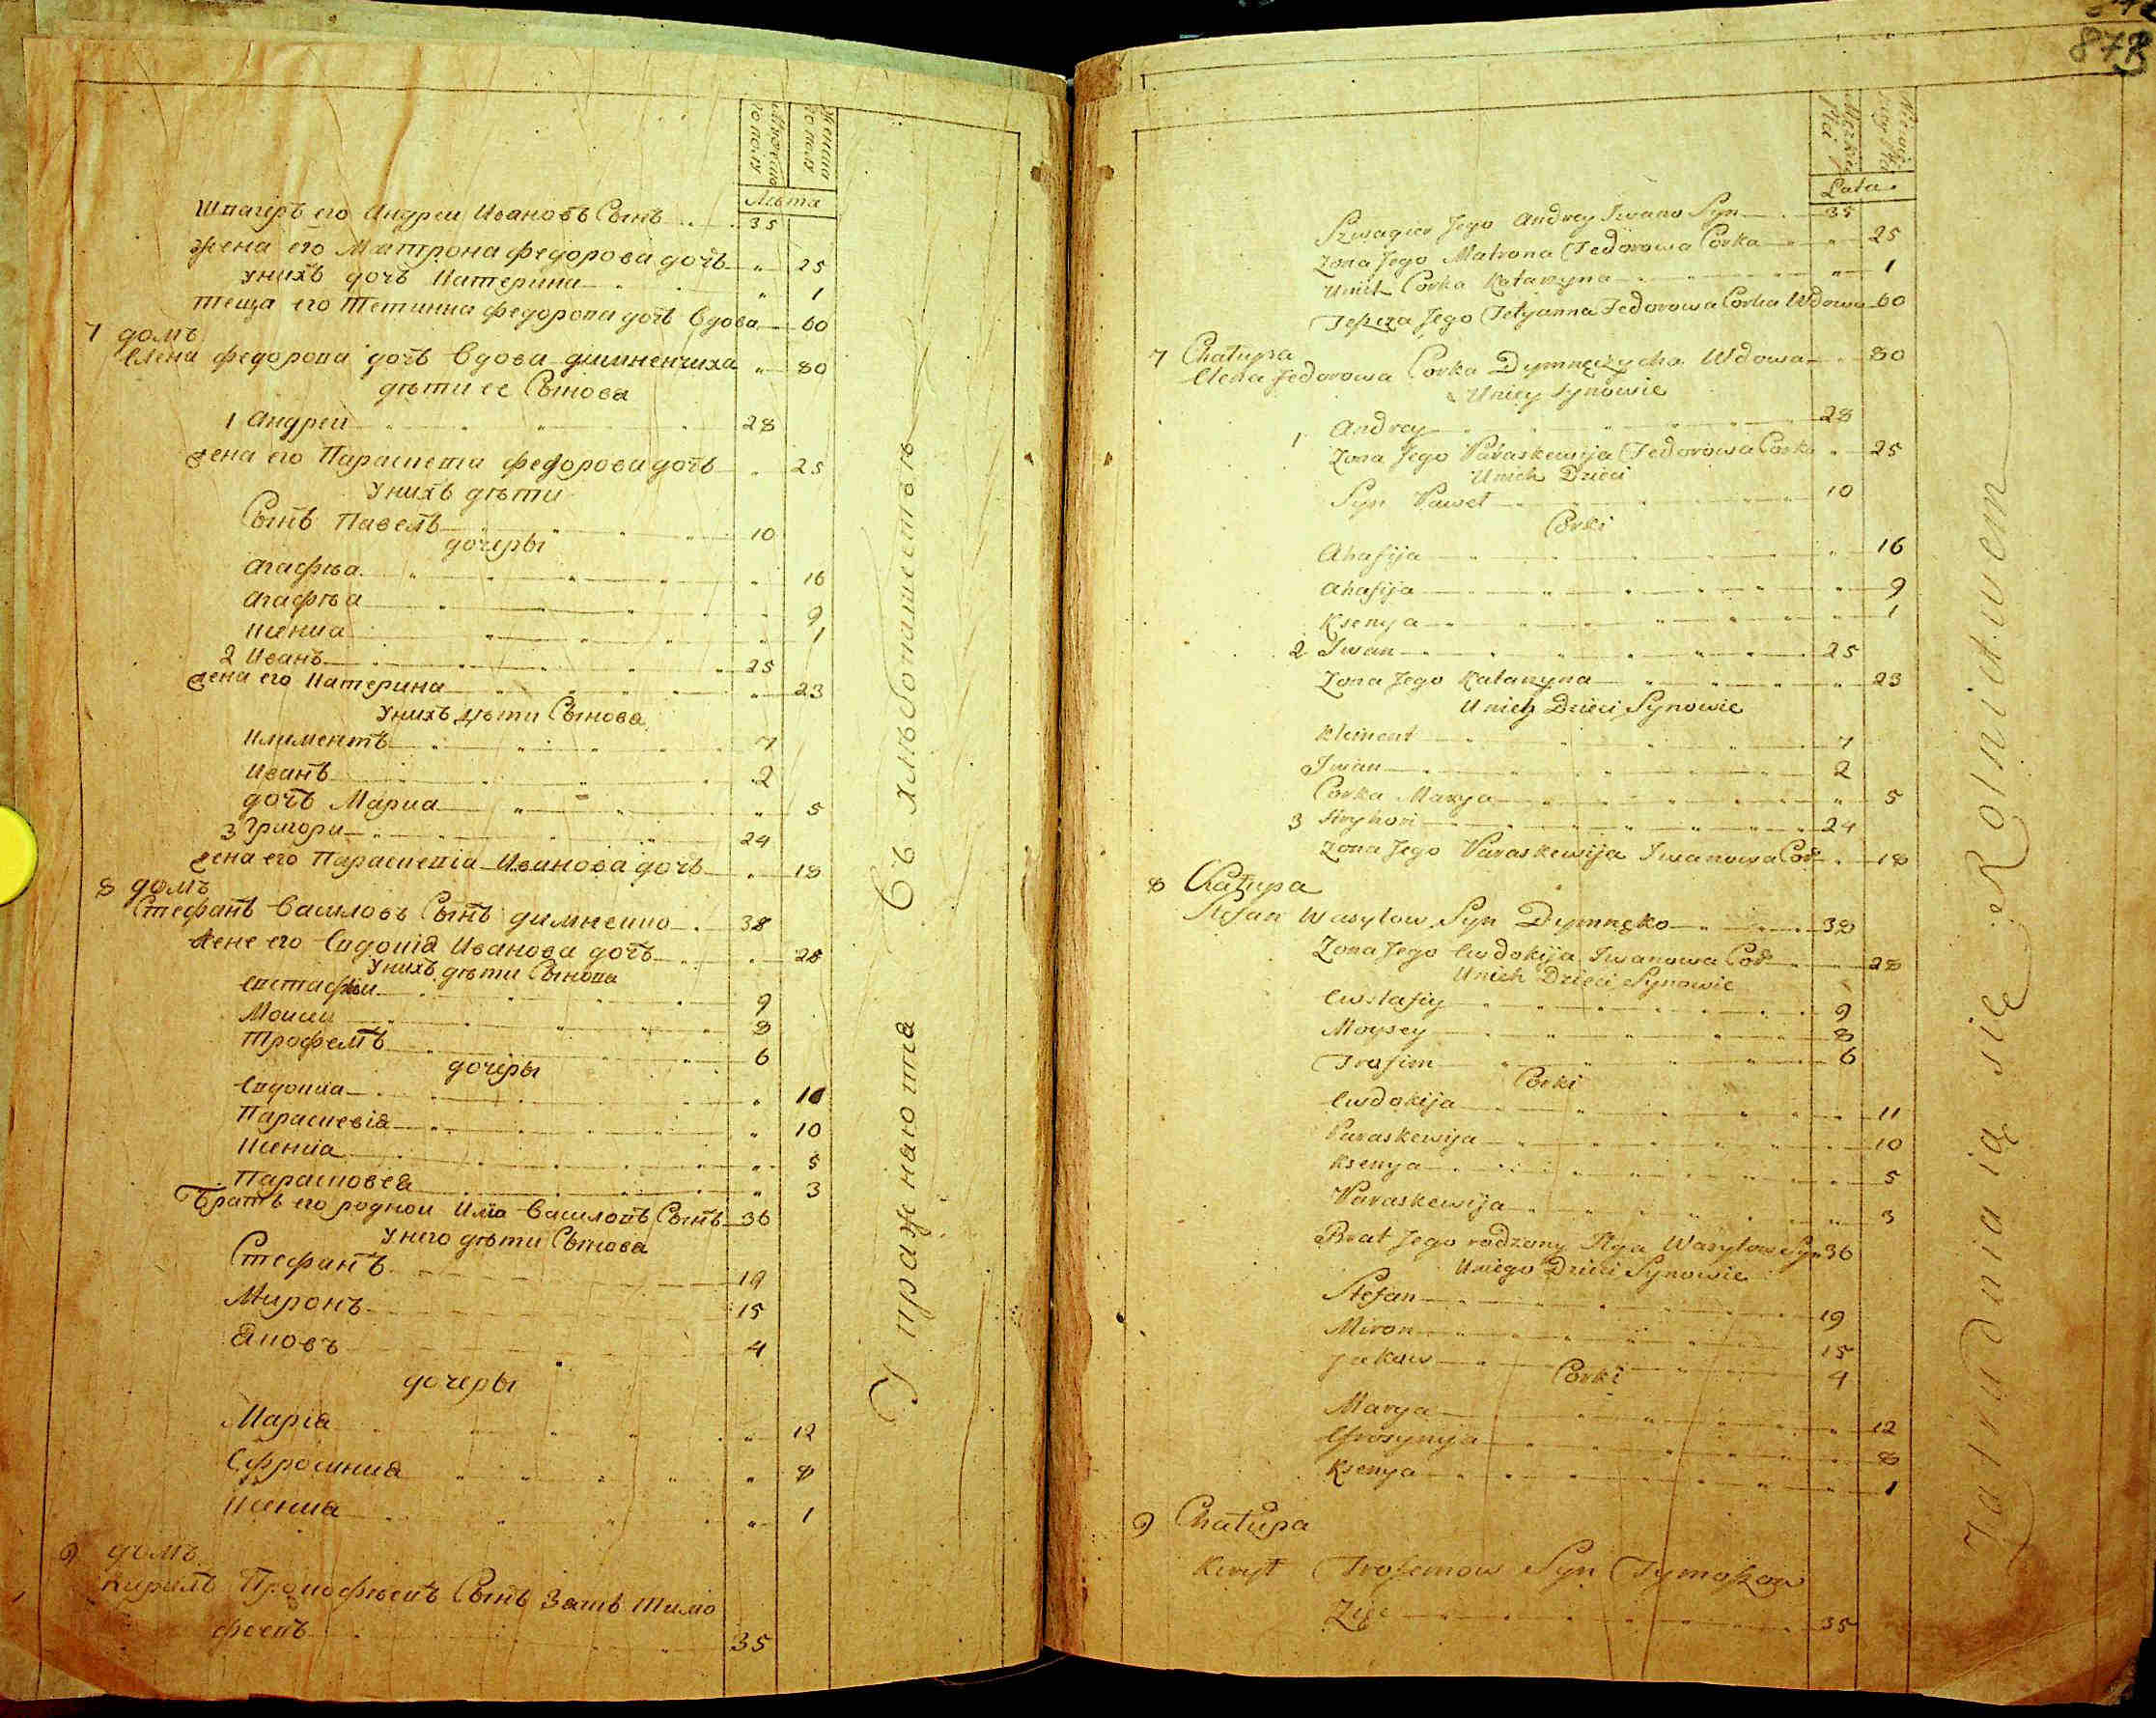 Мужеска
го полу
Женска
го полу
Лѣта
Швагеръ его Андреи Ивановъ Сынъ 35
жена его Матрона федорова дочъ " 25
унихъ дочъ Катерина " 1
теща его Тетианна федорова дочъ вдова 60
7 домъ
Елена федорова дочъ вдова димненчиха " 80
дѣти ее Сынова
1 Андреи 28
жена его Параскева федорова дочъ " 25
унихъ дѣти
Сынъ Павелъ 10
дочеры
Агафѣа " 16
Агафѣа " 9
Ксениа " 1
2 Иванъ 25
жена его Катерина " 23
унихъ дѣти Сынова
Климентъ 7
Иванъ 2
дочъ Мариа " 5
3 Григори 24
жена его Параскевіа Иванова дочъ " 18
8 домъ
Стефанъ Василовъ Сынъ димненко 38
жене его Евдокіа Иванова дочъ 28
унихъ дѣти Сынова
Евстафеи 9
Моисеи 8
Трофемъ 6
дочеры
Евдокиа " 11
Параскевіа " 10
Ксениа " 5
Парасковеа " 3
Братъ его роднои Илїа Василовъ Сынъ 36
унего дѣти Сынова
Стефанъ 19
Миронъ 15
Яковъ 4
дочеры
Маріа " 12
Ефросиниа " 8
Ксениа " 1
9 домъ
Кирилъ Прокофѣевъ Сынъ Затъ Тимо
феевъ 35
Упражнаютса Съ хлѣбопашествѣ
873
Męzkiey
Płci
Lata
Szwagier Jego Andrey Iwano Syn 35
Zona Jego Matrona Fedorowa Corka " 25
Unich Corka Katarzyna " 1
Teszcza Jego Tetyanna Fedorowa Corka Wdowa 60
7 Chałupa
Elena Fedorowa Corka Dymnęczycha Wdowa " 80
Uniey Synowie
1 Andrey 28
Zona Jego Paraskewija Fedorowa Corka " 25
Unich Dzieci
Syn Paweł 10
Corki
Ahafija " 16
Ahafija " 9
Ksenya " 1
2 Iwan 25
Zona Jego Katarzyna " 23
Unich Dzieci Synowie
Kliment 7
Iwan 2
Corka Marya " 5
3 Hryhori 24
Zona Jego Paraskewija Iwanowa Cor " 18
8 Chałupa
Stefan Wasylow Syn Dymnęko 38
Zona Jego Ewdokija Iwanowa Cor 28
Unich Dzieci Synowie
Ewstafiy 9
Moysey 8
Trafim 6
Corki
Ewdokija " 11
Paraskewija " 10
Ksenya " 5
Paraskewija " 3
Brat Jego rodzony Ilya Wasylow Syn 36
Uniego Dzieci Synowie
Stefan 19
Miron 15
Jakow 4
Corki
Marya " 12
Efrosynya " 8
Ksenya " 1
9 Chałupa
Kirył Trofemow Syn Tymoszow
Zięć 35
Zatrudnia ią się Rolnictwem